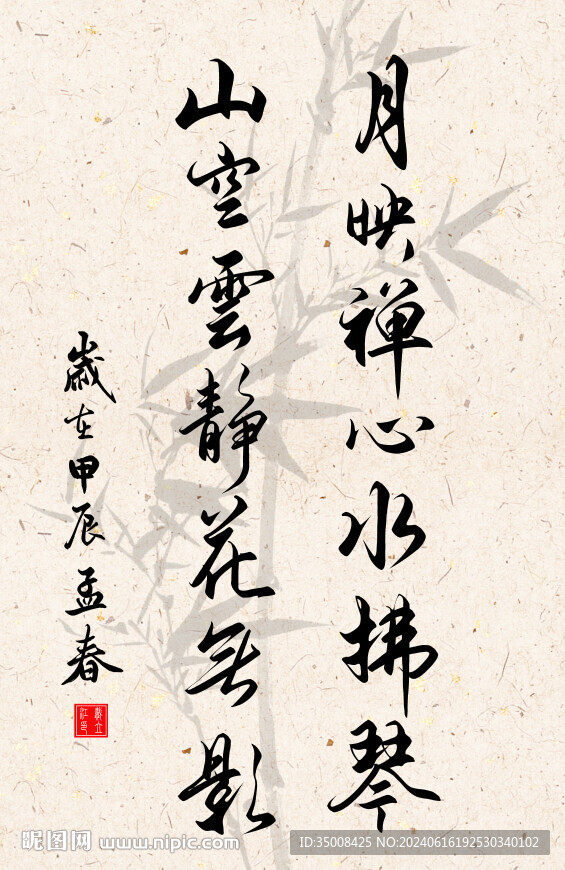 月映禅心水拂琴
山空雲靜花無影
歲在甲辰孟春
昵图网 www.nipic.com
ID:35008425 NO:20240616192530340102